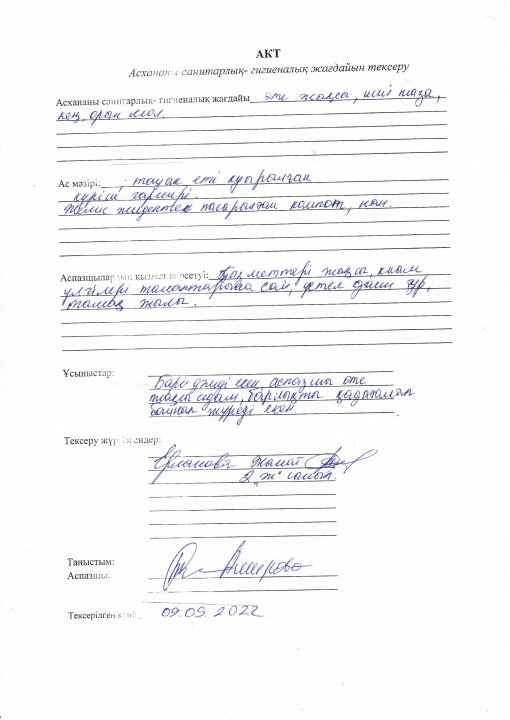 АКТ
Асхананы санитарлық- гигиеналық жағдайын тексеру
Асхананы санитарлық- гигиеналық жағдайы өте жақсы, іші таза,
кең, орын мол.
Ас мәзірі: , тауық еті қуырылған
күріш гарнирі.
Жеміс жидектен компот, нан.
Аспазшылардың қызмет көрсетуі: Қызметтері жақсы, киім
үлгілері талаптарына сай, үстел дайын тұр,
тамақ жылы.
Ұсыныстар:
Бәрі дәмді екен, аспазшы өте
жақсы адам, барлықты қадағалап
байқап жүреді екен.
Тексеру жүргізгендер:
Ерманова
2 "ж" сынып.
Таныстым:
Аспазшы:
Тексерілген күні: 09.09.2022